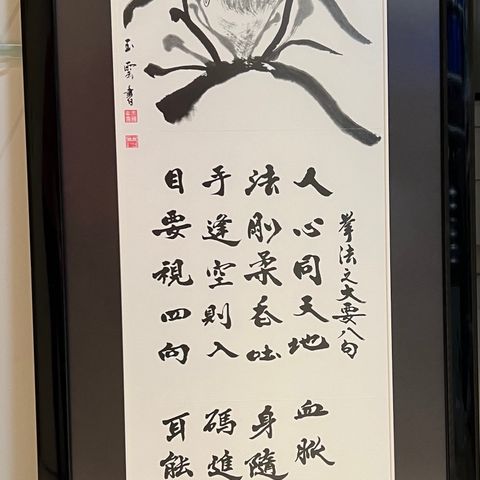 拳法之大要八句
人心同天地 血脈
法剛柔吞吐 身隨
手逢空則入 碼進
目要視四向 耳能
玉雲書